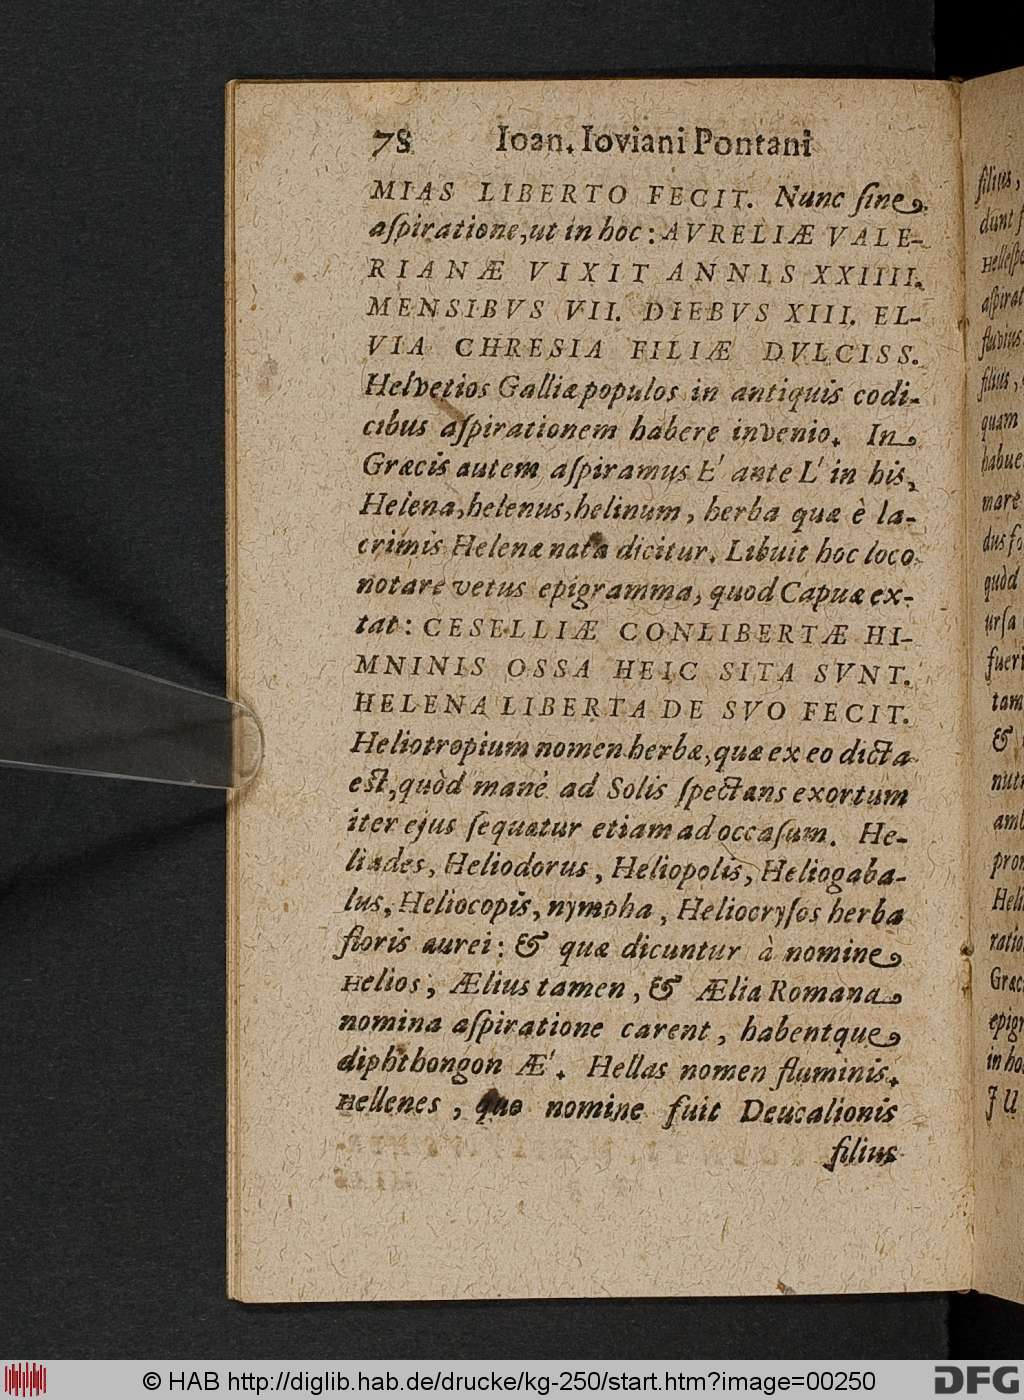 78 Ioan. Ioviani Pontani
MIAS LIBERTO FECIT. Nunc ſine
aſpiratione, ut in hoc: AVRELIÆ VALE-
RIANÆ VIXIT ANNIS XXIIII.
MENSIBVS VII. DIEBVS XIII. EL-
VIA CHRESIA FILIÆ DVLCISS.
Helvetios Galliæ populos in antiquis codi-
cibus aſpirationem habere invenio. In
Græcis autem aſpiramus E' ante L' in his,
Helena, helenus, helinum, herba quæ è la-
crimis Helenæ nata dicitur. Libuit hoc loco
notare vetus epigramma, quod Capuæ ex-
tat: CESELLIÆ CONLIBERTÆ HI-
MNINIS OSSA HEIC SITA SVNT.
HELENA LIBERTA DE SVO FECIT.
Heliotropium nomen herbæ, quæ ex eo dicta
eſt, quòd manè ad Solis ſpectans exortum
iter ejus ſequatur etiam ad occaſum. He-
liades, Heliodorus, Heliopolis, Heliogaba-
lus, Heliocopis, nympha, Heliocryſos herba
floris aurei: & quæ dicuntur à nomine
Helios; Ælius tamen, & Ælia Romana
nomina aſpiratione carent, habentque
diphthongon Æ'. Hellas nomen fluminis.
Hellenes, quo nomine fuit Deucalionis
filius
filius,
dunt
aſpirat
fluvius
filius,
quam
habue
mare
dus fo
quòd
urſa
fueri
tam
&
nutr
amb
pron
Heli
ratio
Græc
epigr
in hoc
JU
© HAB http://diglib.hab.de/drucke/kg-250/start.htm?image=00250
DFG